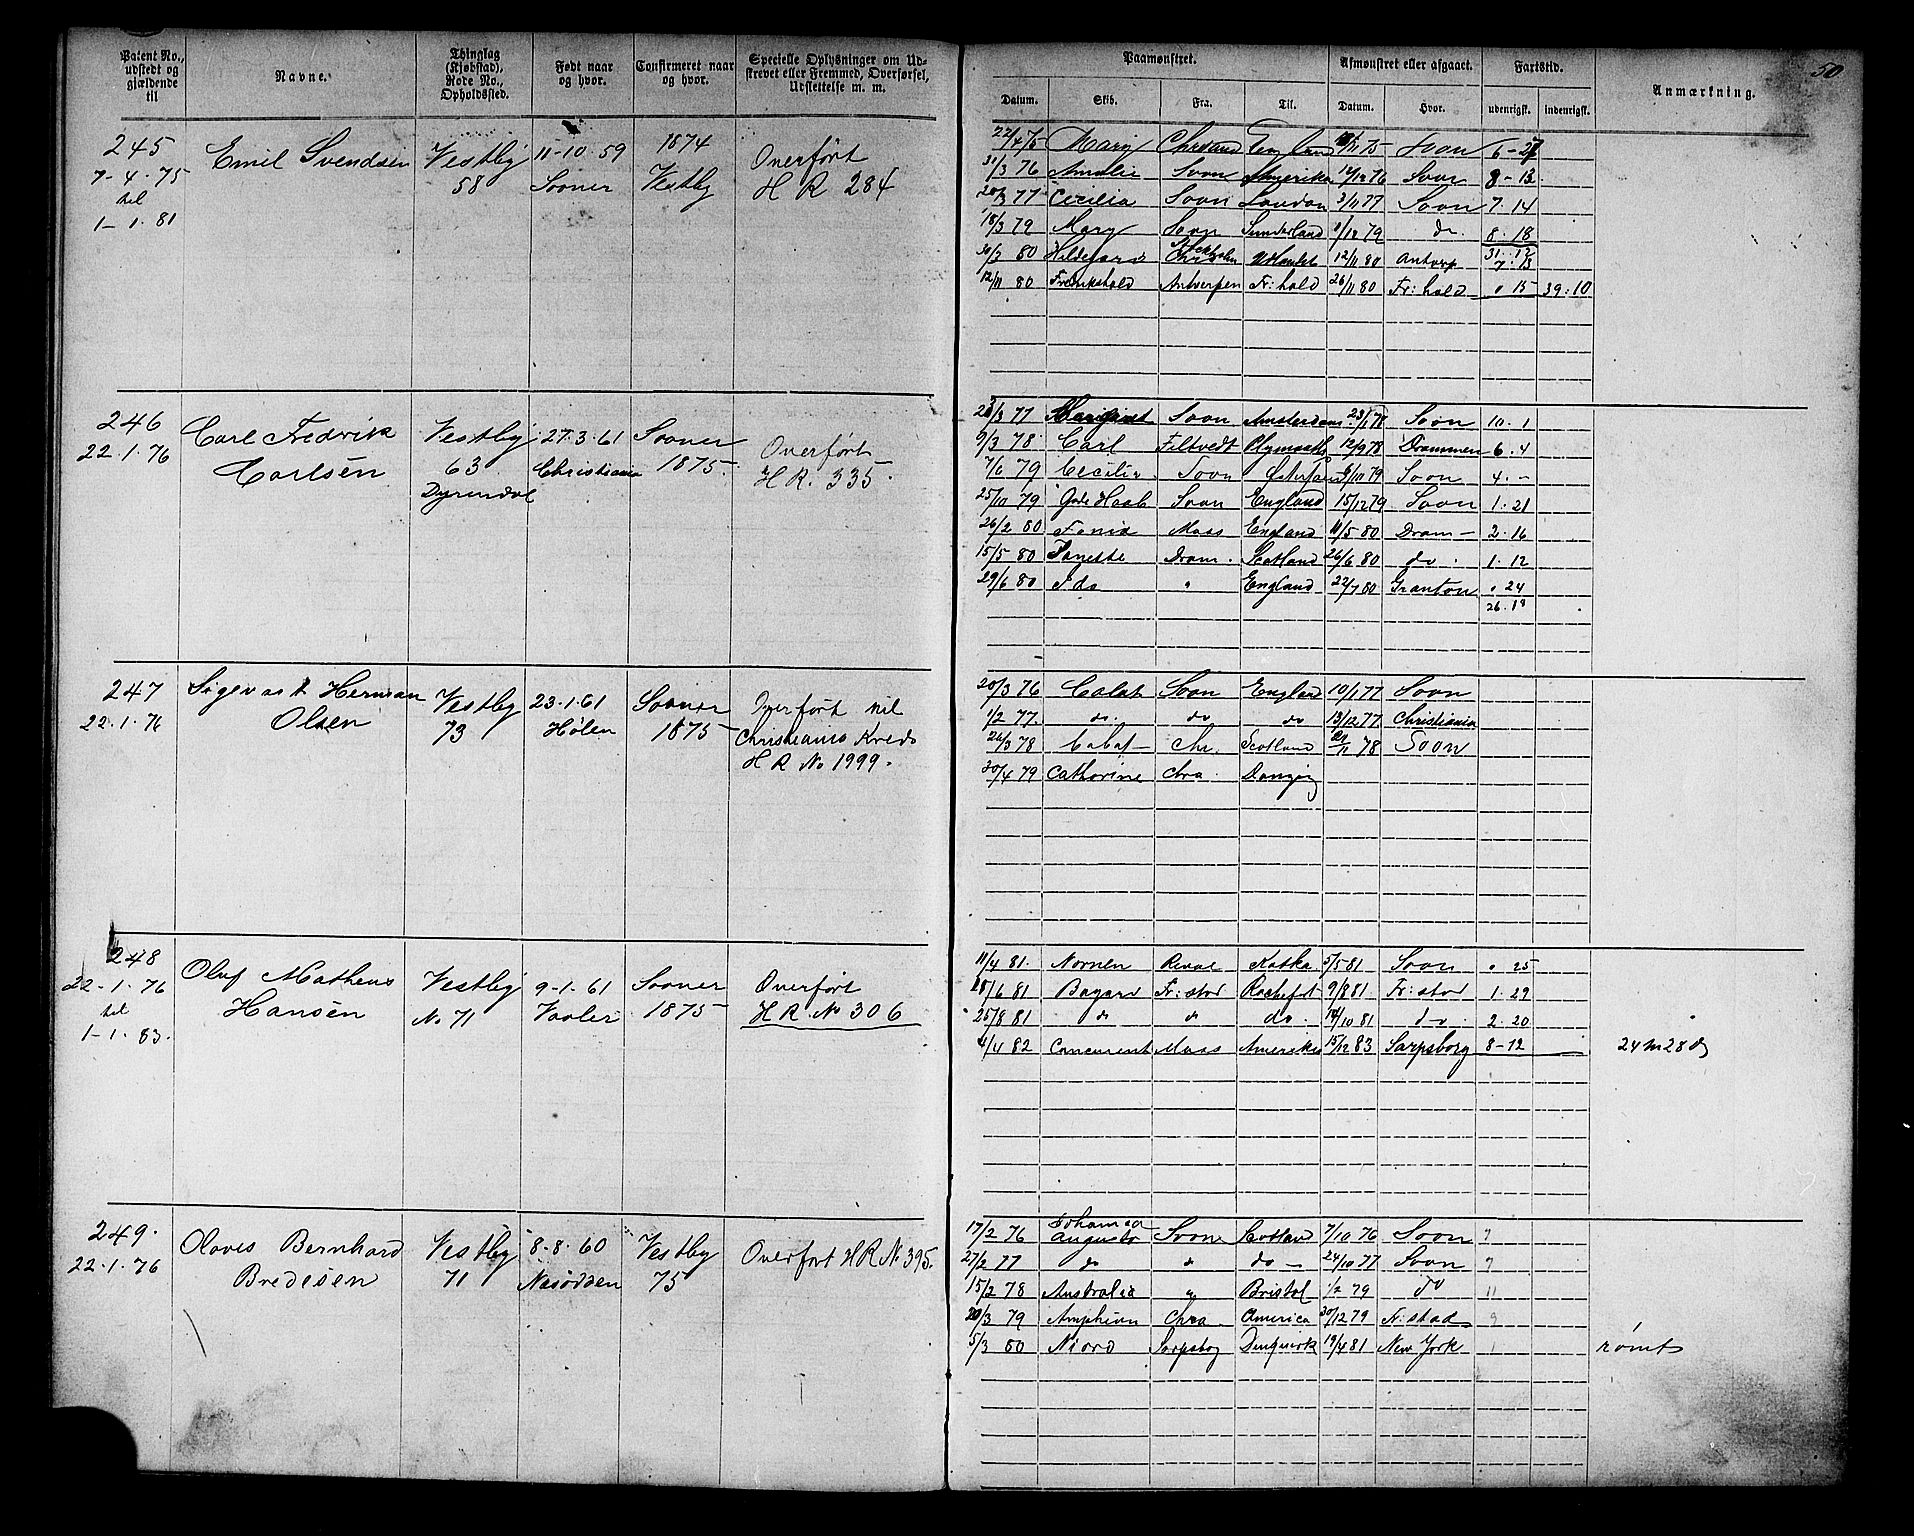 50
Patent No., udstedt og gjældende til
Navne.
Thinglag (Kjøbstad), Rode No., Opholdssted.
Født naar og hvor.
Confirmeret naar og hvor.
Specielle Oplysninger om Udskrevet eller Fremmed, Overførsel, Udslettelse m. m.
Paamønstret.
Afmønstret eller afgaaet.
Fartstid.
Anmærkning.
Datum. Skib. Fra. Til. Datum. Hvor. udenrigsk. indenrigsk.
245
7-4.75
til
1-1.81
Emil Svendsen
Vestby
58
11-10.59
Sooner
1874
Vestby
Overført
H R 284
22/4 75 Mary England 75 Soon 6-27
31/3 76 Amalie Soon Amerika 14/12 76 Soon 8-13
77 Cecilia Soon London 3/11 77 Soon 7.14
18/3 79 Mary Soon Sunderland 1/12 79 do. 8.18
31.12
80 12/11 80 Antwp 7.13
12/11 80 Fredrikshald Antverpen Fr:hald 26/11 80 Fr:hald " 15 39:10
246
22.1.76
Carl Fredrik
Carlsen
Vestby
63
Dyrendal
27.3.61
Christiania
Sooner
1875.
Overført
H R. 335.
77 Soon Amsterdam 23/1 78 Soon 10.1
9/3 78 Carl Filtvedt Plymouth 12/9 78 Drammen 6.4
7/6 79 Cecilia Soon 79 Soon 4.-
25/10 79 Gode Haab Soon England 15/12 79 Soon 1.21
26/2 80 Fania Moss England 11/5 80 Dram- 2.16
15/5 80 Janette Dram. Skotland 26/6 80 do. 1.12
29/6 80 Ida " England 22/7 80 Granton " 24
26.18
247
22.1.76
Sigevart Herman
Olsen
Vestby
73
23.1.61
Hølen
Sooner
1875
Overført til
Christiania Kreds
H R No 1999.
20/3 76 Soon England 10/1 77 Soon
1/2 77. do. do do 13/12 77 Christiania
26/3 78 Chr. Scotland 78 Soon
30/4 79 Cathorine Chra. Danzig
248
22-1.76
til
1-1.83.
Oluf Matheus
Hansen
Vestby
No 71
9-1.61
Vaaler
Sooner
1875
Overført
H R. No 306
11/4 81. Nornen Reval 5/5 81 Soon " 25
18/6 81 Fr:stad Rochefort 9/8 81. Fr:stad 1.29
25/8 81 do do do. 14/10 81 do. 2.20
4/4 82 Concurent Moss Amerika 15/12 83 Sarpsborg 8-12 24 m 28 dg
249.
22.1.76
Olaves Bernhard
Bredesen
Vestby
71
8-8.60
Nesodden
Vestby
75
Overført H R No 395.
17/2 76 Johanna
Augusta Soone 7/10 76 Soon 7
27/2 77 do " do - 24/10 77 Soon 7
15/2 78 Australia " Bristol 1/2 79 do 11
20/3 79 Amphion Chra. America 30/12 79 Fr:stad 9
5/3 80 Niord Sarpsbog Dunquirk 19/4 81 New York rømt